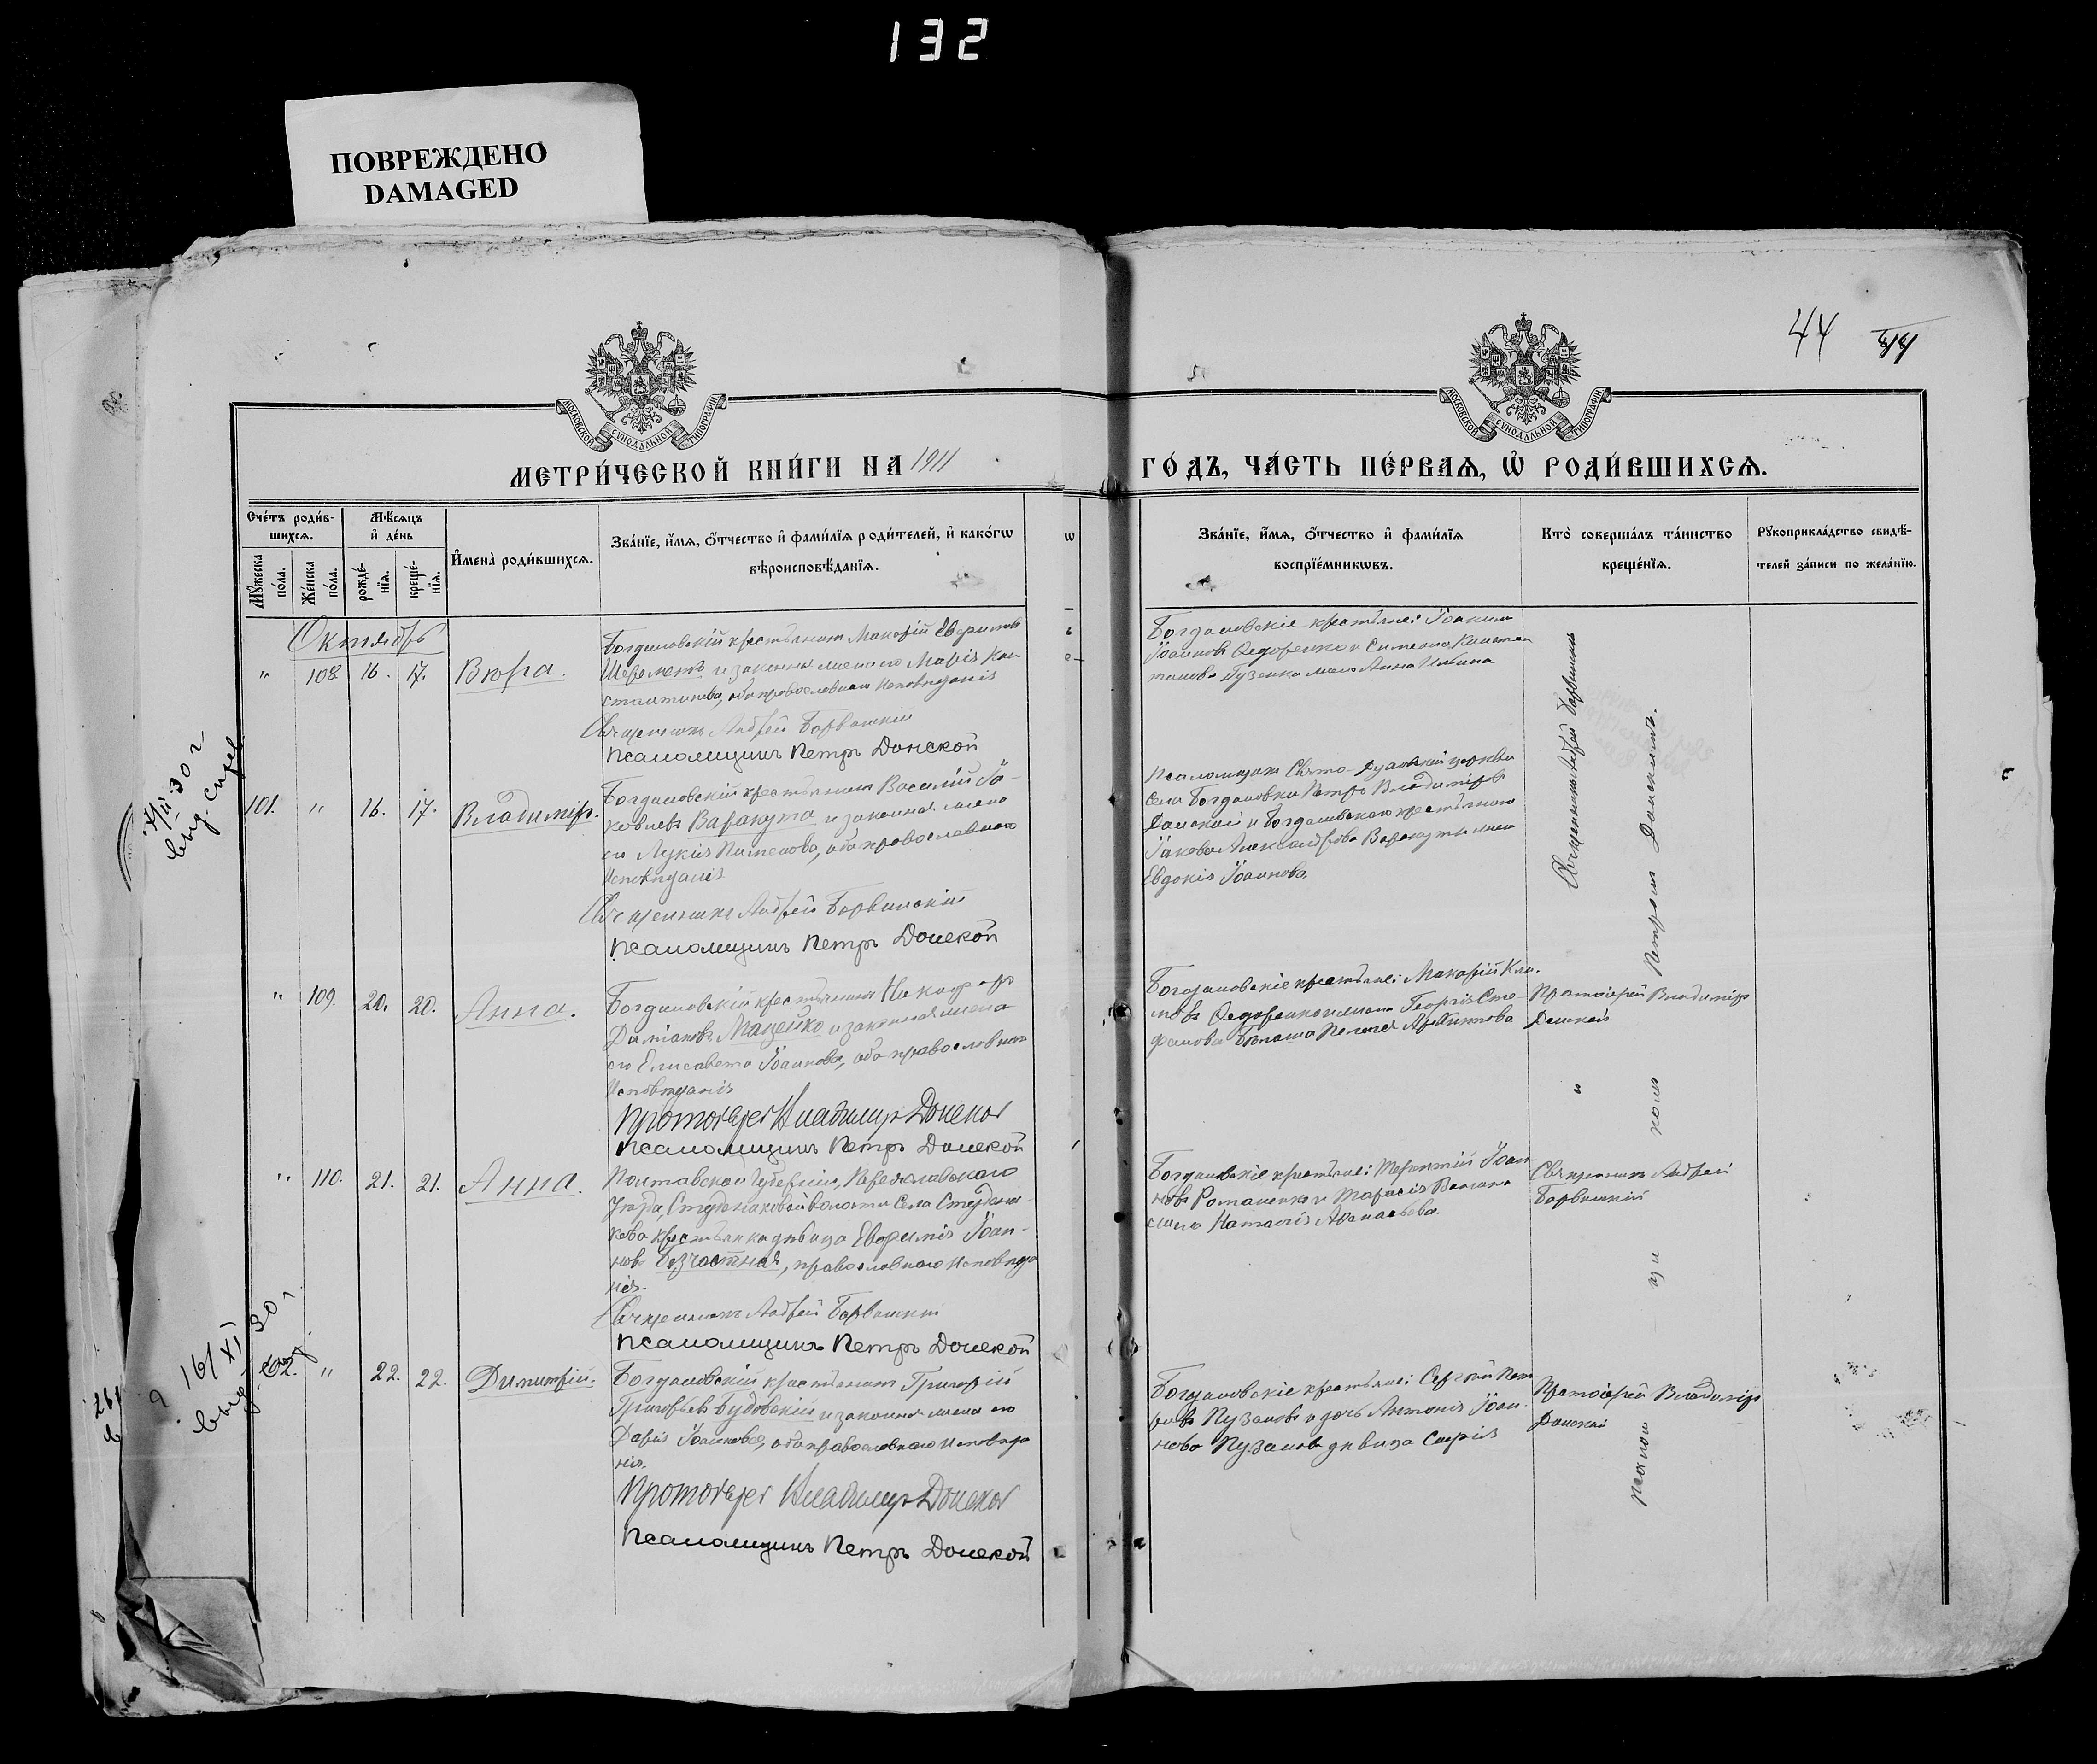 132
ПОВРЕЖДЕНО
DAMAGED
44
МОСКОВСКОЙ СУНОДАЛЬНОЙ ТИПОГРАФІИ
МОСКОВСКОЙ СУНОДАЛЬНОЙ ТИПОГРАФІИ
МЕТРИ́ЧЕСКОЙ КНИ́ГИ НА 1911
ГО́ДЪ, ЧА́СТЬ ПЕ́РВАѦ, Ѡ҆ РОДИ́ВШИХСѦ.
Сче́тъ роди́в-
шихсѧ.
Мѣ́сѧцъ
и҆ де́нь
Мꙋ́жеска по́ла.
Же́нска по́ла.
рожде́-
нїѧ.
креще́-
нїѧ.
И҆мена̀ роди́вшихсѧ.
Зва́нїе, и҆́мѧ, ѻ҆́тчество и҆ фами́лїѧ роди́телей, и҆ како́гѡ
вѣроисповѣ́данїѧ.
Зва́нїе, и҆́мѧ, ѻ҆́тчество и҆ фами́лїѧ
воспрїе́мникѡвъ.
Кто̀ соверша́лъ та́инство
креще́нїѧ.
Рꙋкоприкла́дство свидѣ́-
телей за́писи по жела́нїю.
Октябрь
" 108 16. 17. Вѣра.
Богдановскій крестьянинъ Макарій Евфимовъ
Шереметъ и законная жена его Марія Кон
стантинова, оба православнаго исповѣданія
Священникъ Андрей Борвинскій
Псаломщикъ Петръ Донской
Богдановскіе крестьяне: Іоаннъ
Іоанновъ Федоренко и Симеона Констан
тинова Гузенка жена Анна Ильина
Священникъ Андрей Борвинскій
101. " 16. 17. Владиміръ.
Богдановскій крестьянинъ Василій Іа-
ковлевъ Варакута и законная жена
его Лукія Пименова, оба православнаго
исповѣданія
Священникъ Андрей Борвинскій
Псаломщикъ Петръ Донской
Псаломщикъ Свято-Духовской церкви
села Богдановки Петръ Владиміровъ
Донской и Богдановскаго крестьянина
Іакова Александрова Варакуты жена
Евдокія Іоаннова.
" 109. 20. 20. Анна.
Богдановскій крестьянинъ Никифоръ
Даміановъ Мацейко и законная жена
его Елисавета Іоаннова, оба православнаго
исповѣданія
Протоіерей Владиміръ Донской
Псаломщикъ Петръ Донской
Богдановскіе крестьяне: Макарій
новъ Федоренко и жена Георгія Сте-
фанова Пелагея
Протоіерей Владиміръ
Донской
" 110. 21. 21. Анна.
Полтавской губерніи, Переяславскаго
уѣзда, Студениковской волости села Студени-
кова крестьянка дѣвица Евфимія Іоан-
нова Безчастная, православнаго исповѣда
нія.
Священникъ Андрей Борвинскій
Псаломщикъ Петръ Донской
Богдановскіе крестьяне: Терентій Іоан-
новъ Романенко и Тарасія
жена Наталія Афанасьева.
Священникъ Андрей
Борвинскій
102. " 22. 22. Димитрій.
Богдановскій крестьянинъ Григорій
Григорьевъ Будовскій и законная жена его
Дарія Іоаннова, оба православнаго исповѣда
нія.
Протоіерей Владиміръ Донской
Псаломщикъ Петръ Донской
Богдановскіе крестьяне: Сергѣй Пет
ровъ Пузановъ и дочь Антонія Іоан-
нова Пузанова дѣвица Марія
Протоіерей Владиміръ
Донской
псаломщикомъ Петромъ Донскимъ.